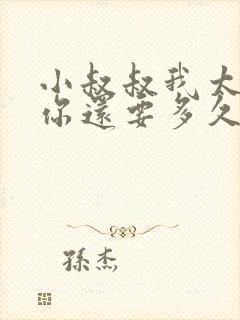 小叔叔我太
你還要多久
孫杰